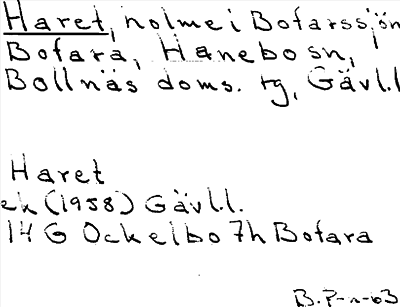 Haret, holme i Bofarssjön
Bofara, Hanebo sn,
Bollnäs doms. tg, Gävl.l
Haret
ek (1958) Gävl.l.
14 G Ockelbo 7h Bofara
B. P-n-63